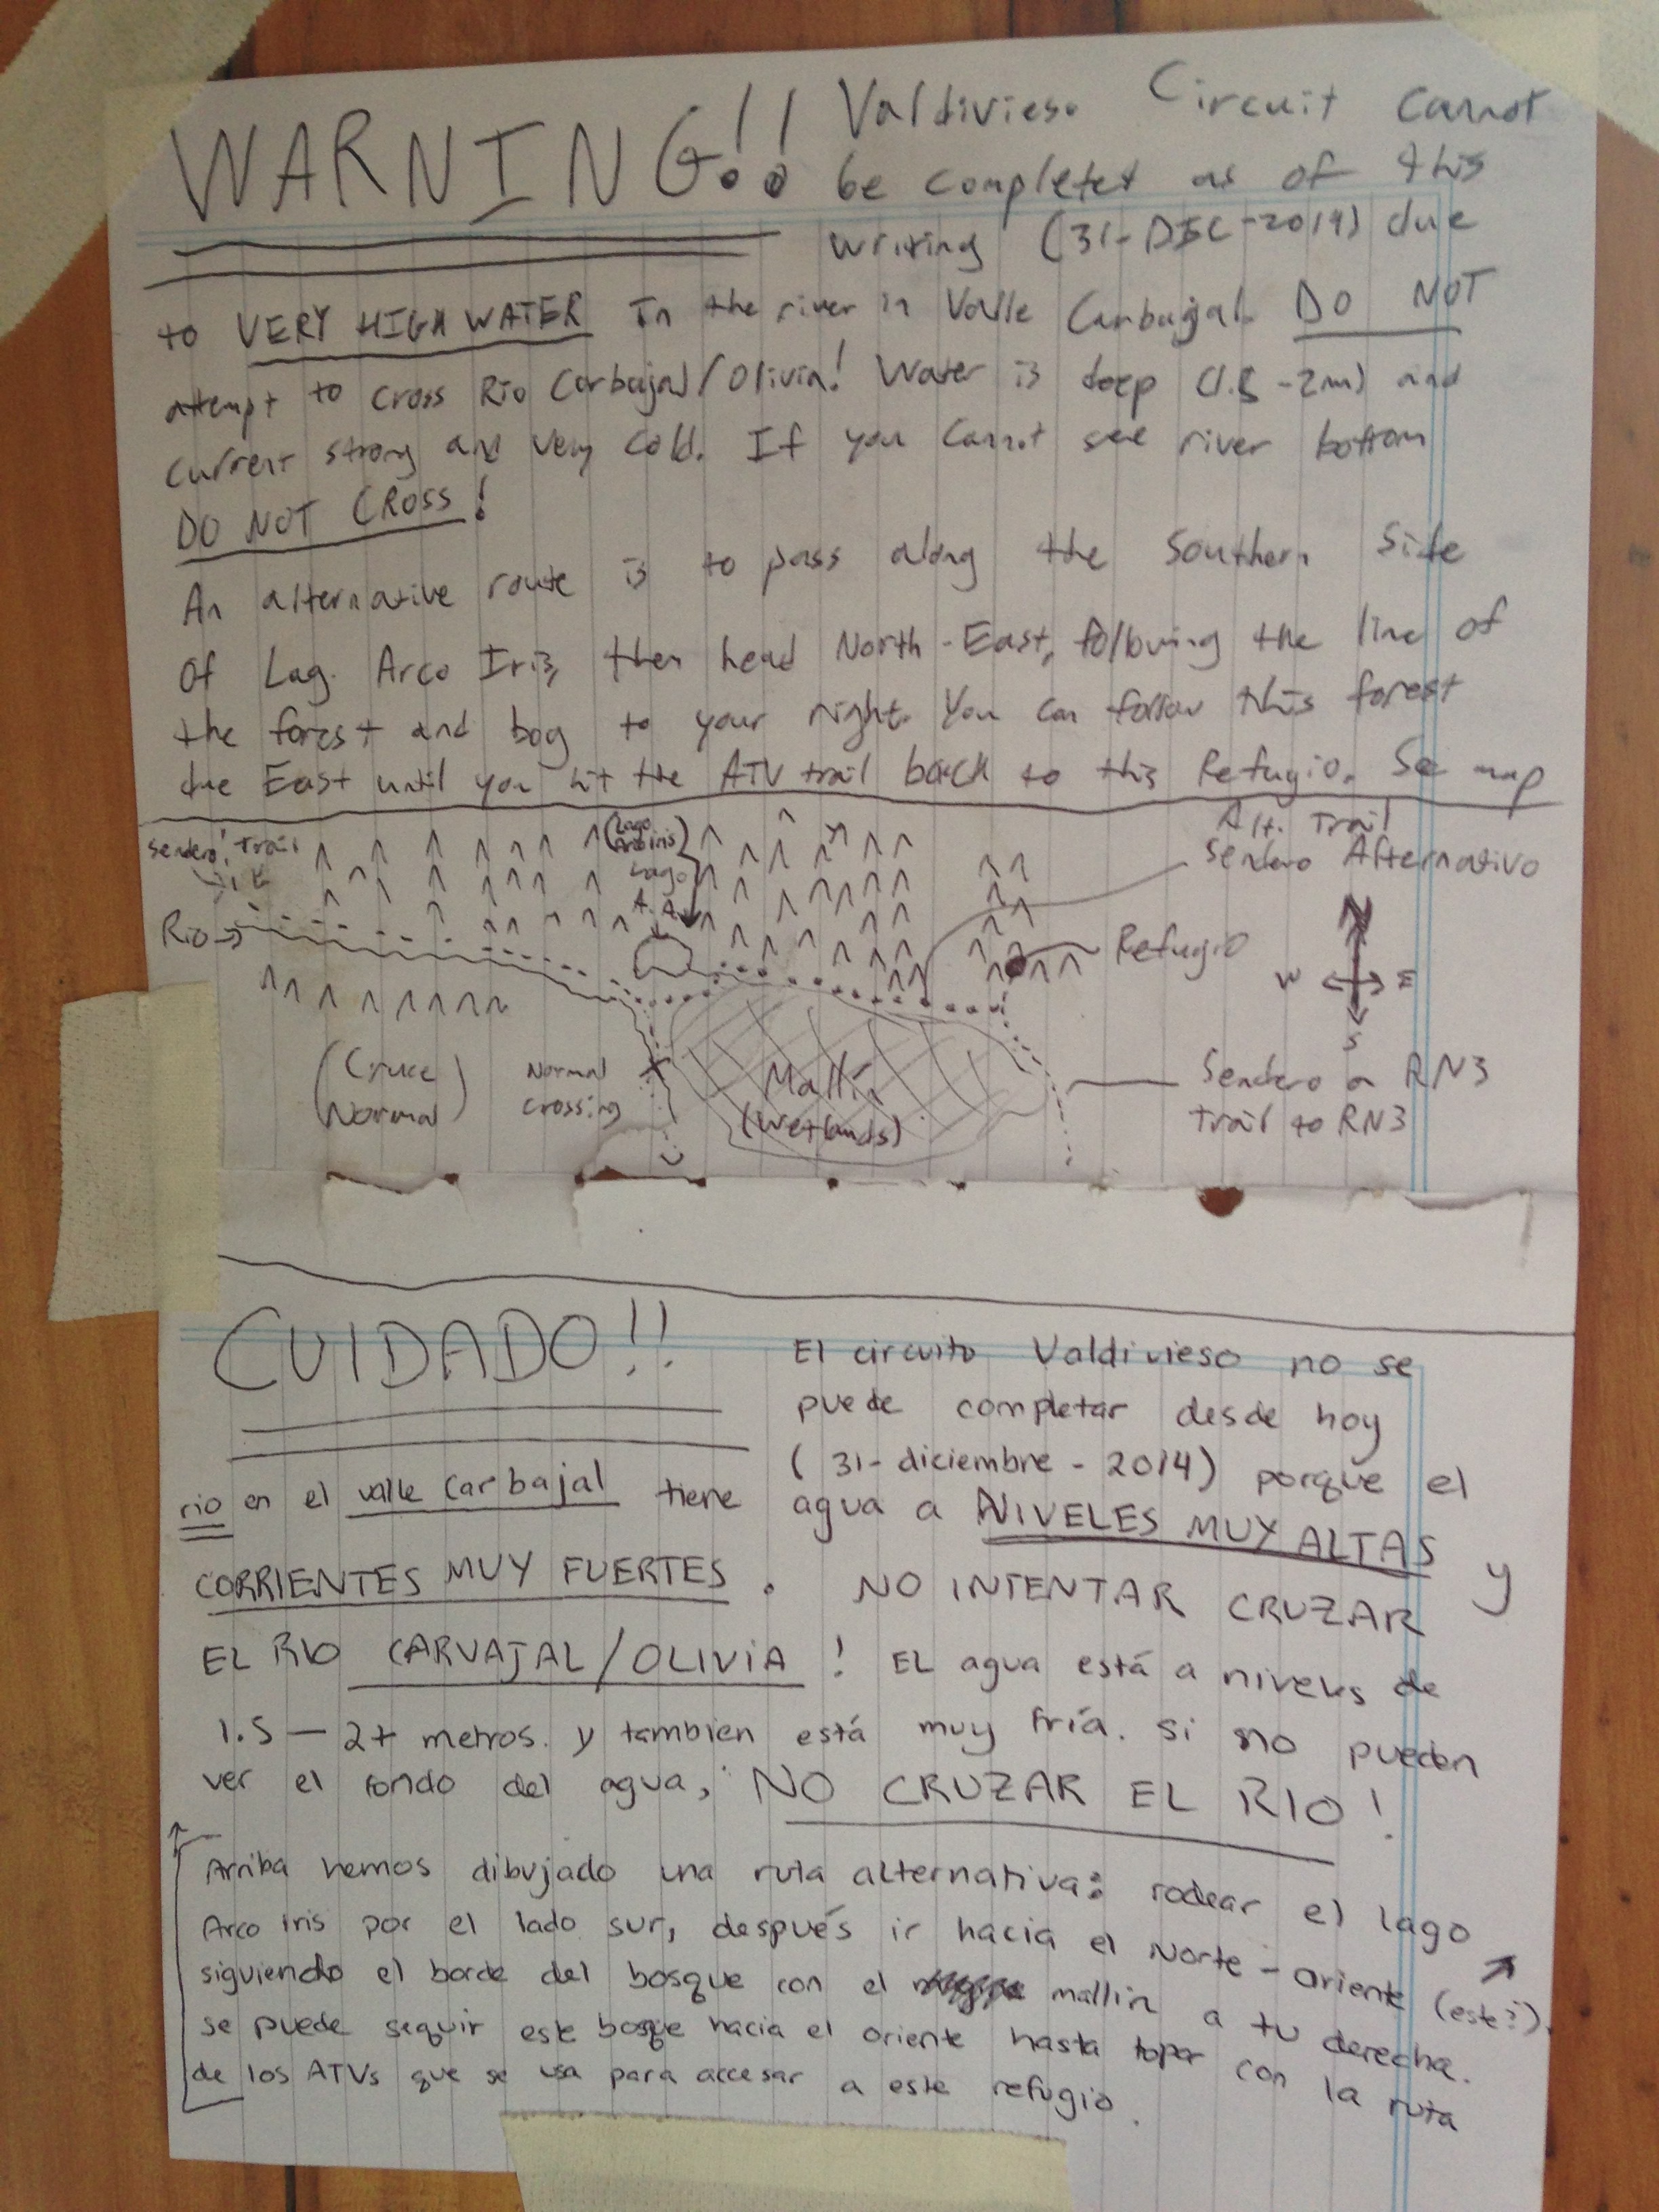 WARNING!! Valdivieso Circuit cannot
be completed as of this
writing (31-DEC-2014) due
to VERY HIGH WATER in the river in Valle Carbajal. DO NOT
attempt to cross Rio Carbajal/Olivia! Water is deep (1.5-2m) and
current strong and very cold. If you cannot see river bottom
DO NOT CROSS!
An alternative route is to pass along the Southern Side
of Lag. Arco Iris, then head North-East, following the line of
the forest and bog to your right. You can follow this forest
due East until you hit the ATV trail back to this Refugio. See map
Sendero! Trail
(Lago Arco iris)
Lago
A. A.
Alt. Trail
Sendero Alternativo
Rio
Refugio
N
W E
S
(Cruce
Normal)
Normal
crossing
Mallín
(wetlands)
Sendero a RN3
trail to RN3
CUIDADO!! El circuito Valdivieso no se
puede completar desde hoy
(31-diciembre-2014) porque el
rio en el valle Carbajal tiene agua a NIVELES MUY ALTAS y
CORRIENTES MUY FUERTES. NO INTENTAR CRUZAR
EL RIO CARVAJAL/OLIVIA! EL agua está a niveles de
1.5 — 2+ metros. y tambien está muy fría. Si no pueden
ver el fondo del agua, NO CRUZAR EL RIO!
Arriba hemos dibujado una ruta alternativa: rodear el lago
Arco Iris por el lado sur, después ir hacia el Norte-oriente (este?)
siguiendo el borde del bosque con el mallin a tu derecha.
se puede seguir este bosqe hacia el oriente hasta topar con la ruta
de los ATVs que se usa para accesar a este refugio.